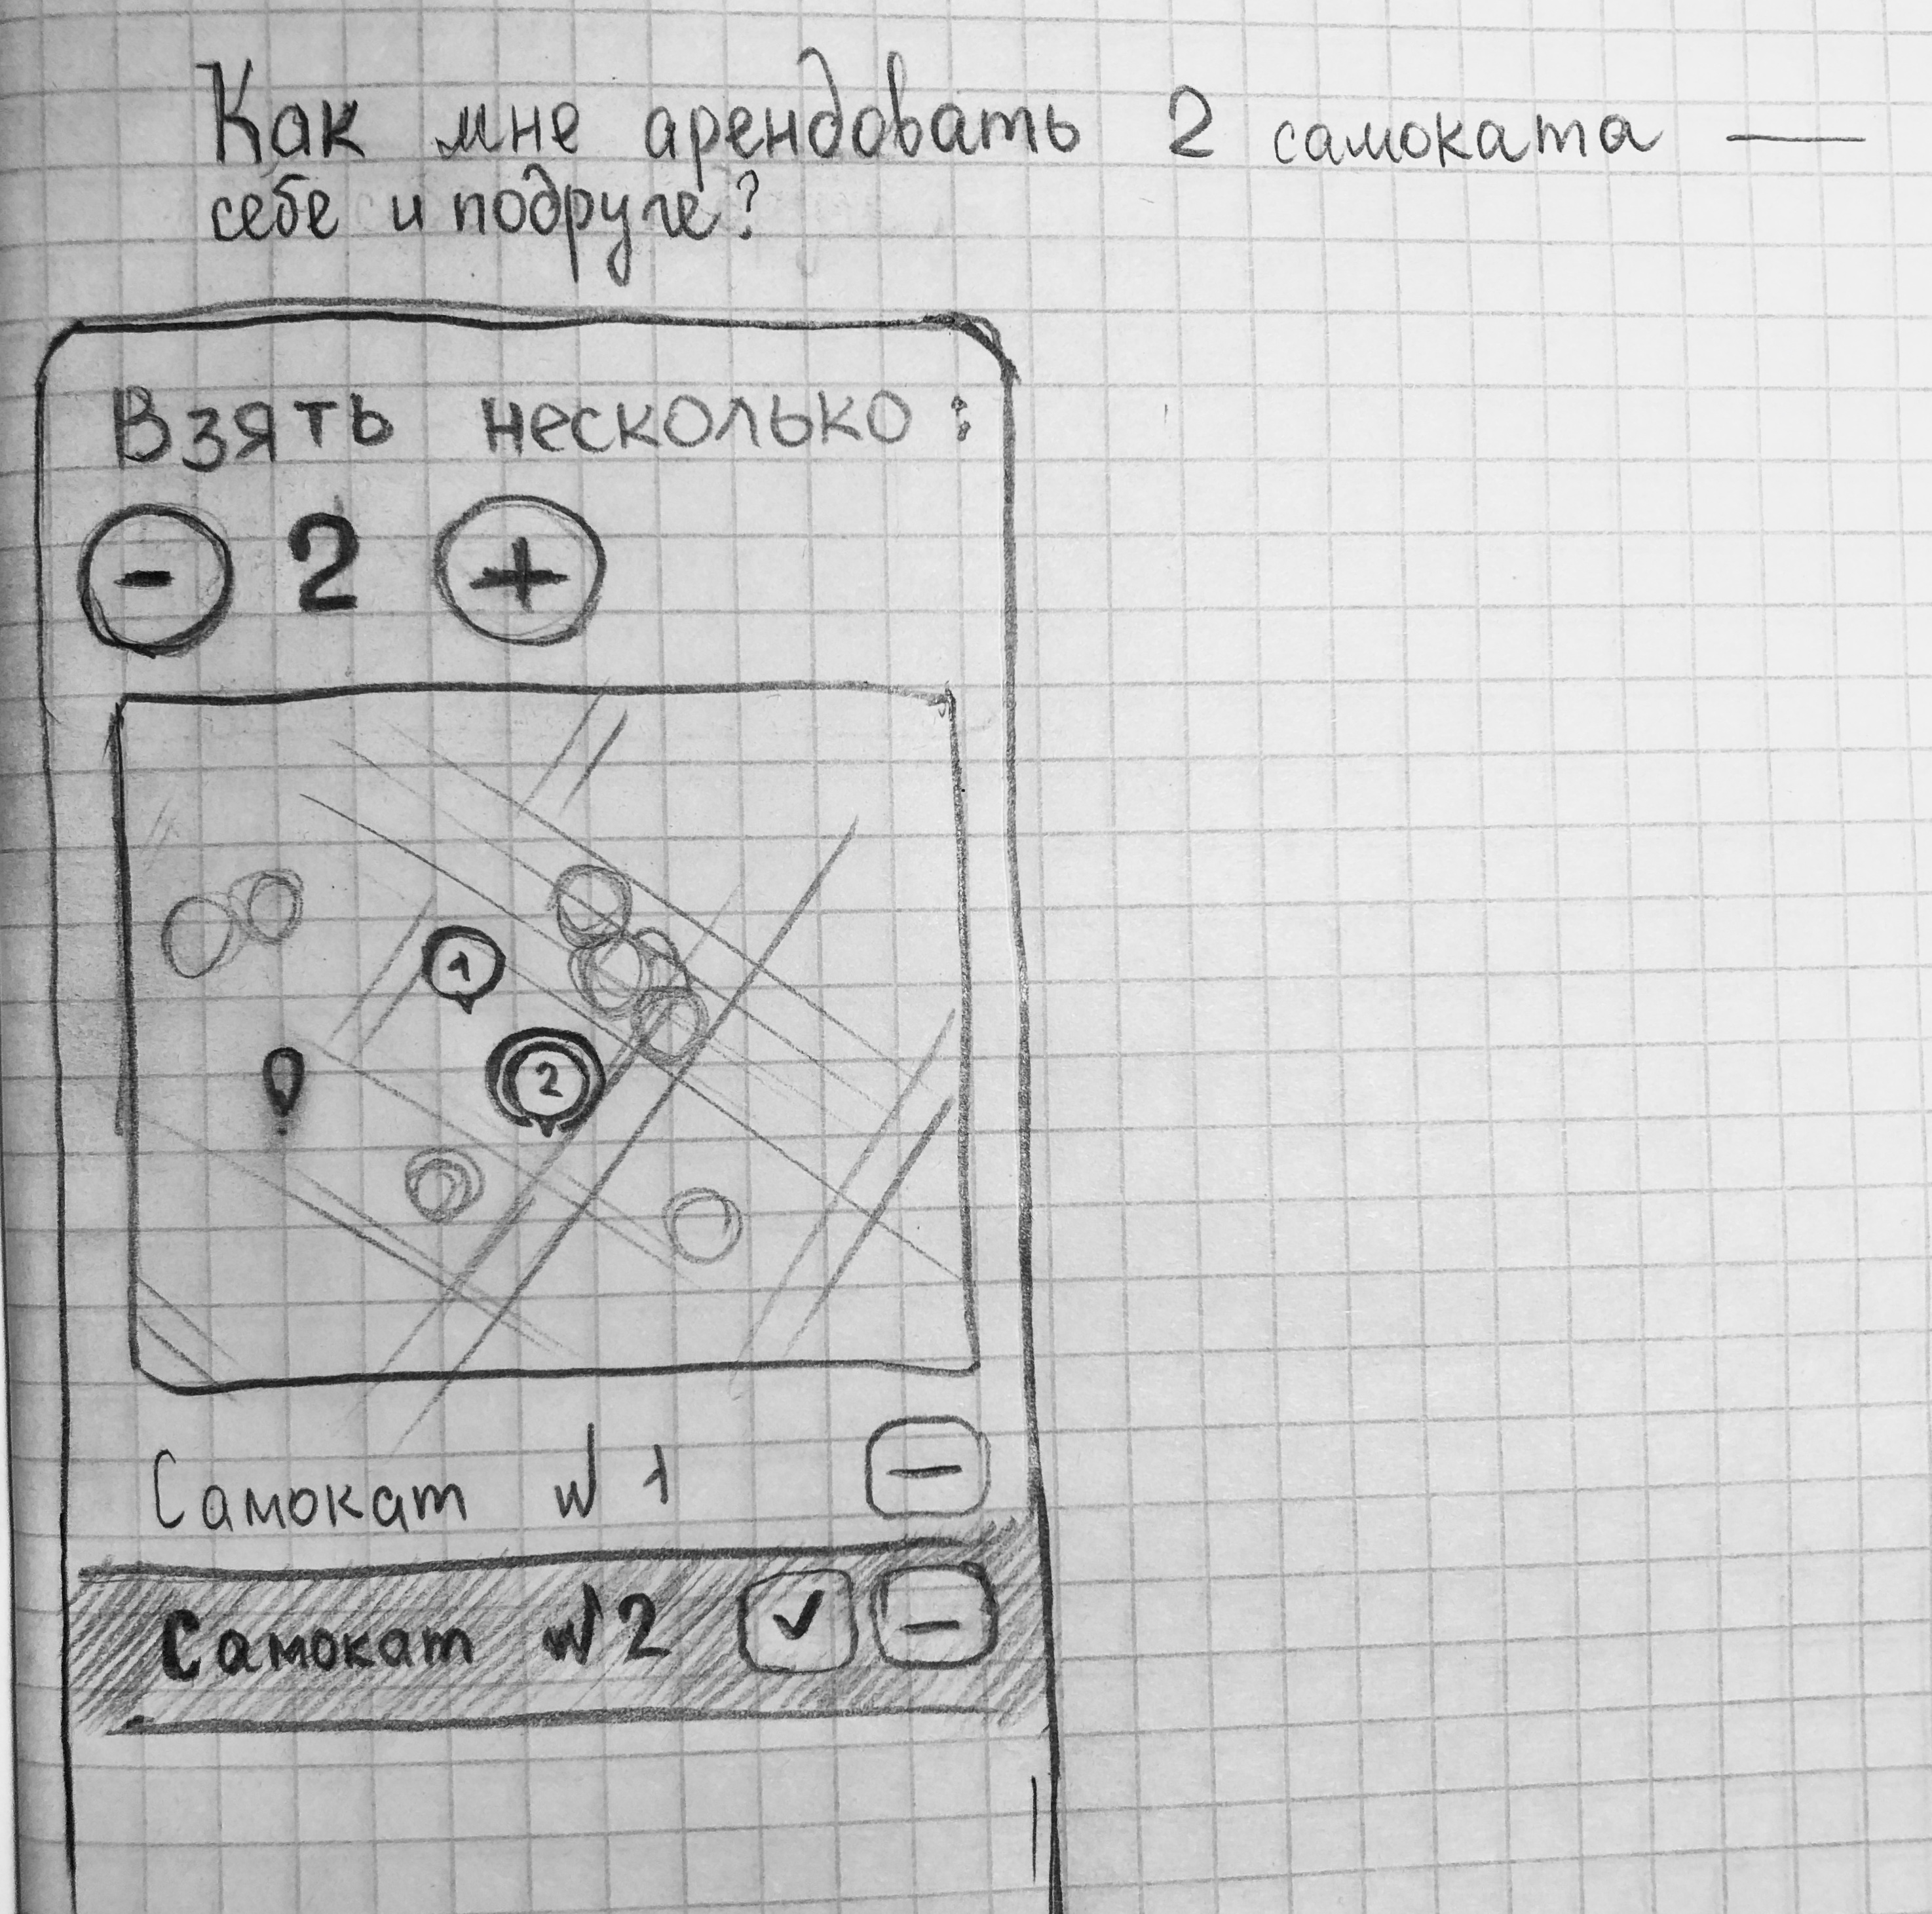 Как мне арендовать 2 самоката —
себе и подруге?
Взять несколько:
- 2 +
1
2
Самокат №1 —
Самокат №2 ✓ —